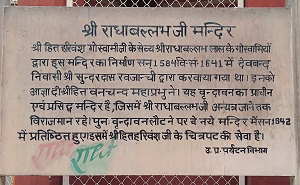 श्री राधाबल्लभ जी मन्दिर
श्री हित हरिवंश गोस्वामी जी के सेव्य श्री राधाबल्लभ लाल के गोस्वामियों
द्वारा इस मन्दिर का निर्माण सन् 1584 वि॰सं॰ 1641 में देवबन्द
निवासी श्री सुन्दरदास खजान्ची द्वारा करवाया गया था। इनको
आज्ञा दी श्री हित वनचन्द महाप्रभु ने। यह वृन्दावन का प्राचीन
एवं प्रसिद्ध मन्दिर है, जिसमें श्री राधाबल्लभ जी अन्यत्र जाने तक
विराजमान रहे। पुनः वृन्दावन लौटने पर वे नये मन्दिर में सन् 1842
में प्रतिष्ठित हुए। इसमें श्री हित हरिवंश जी के चित्रपट की सेवा है।
उ.प्र. पर्यटन विभाग
राधे राधे